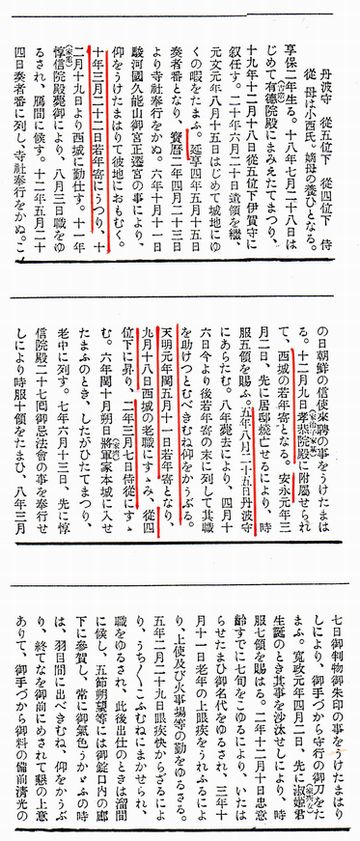 丹波守　從五位下　從四位下　侍
從　母は小西氏。嫡母の養ひとなる。
享保二年生る。十八年七月二十八日は
じめて有德院殿にまみえたてまつり、
十九年十二月十八日從五位下伊賀守に
敍任す。二十年六月二十日遺領を繼、
元文元年八月十五日はじめて城地にゆ
くの暇をたまふ。延享四年五月十五日
奏者番となり、寶曆二年四月二十三日
より寺社奉行をかぬ。六年十月十一日
駿河國久能山御宮正遷宮の事により、
仰をうけたまはりて彼地におもむく。
十年三月二十二日若年寄にうつり、十
二月十九日より西城に勤仕す。十一年
惇信院殿薨御により、八月三日職をゆ
るされ、鴈間に候す。十二年五月二十
四日奏者番に列し、寺社奉行をかぬ。こ
の日朝鮮の信使來聘の事をうけたまは
る。十二月九日孝恭院殿に附屬せられ
て、西城の若年寄となる。安永元年三
月二日、先に居邸燒亡せるにより、時
服五領を賜ふ。五年八月二十五日丹波守
にあらたむ。八年薨去により、四月十
六日今より後若年寄の末に列して其職
を助けつとむべきむね仰をかうぶる。
天明元年閏五月十一日若年寄となり、
九月十八日西城の老職にすゝみ、從四
位下に昇り、二年三月七日侍從にすゝ
む。六年閏十月朔日將軍家本城に入せ
たまふのとき、したがひたてまつり、
老中に列す。七年六月十三日、先に惇
信院殿二十七囘御忌法會の事を奉行せ
しにより時服十領をたまひ、八年三月
七日御判物御朱印の事をうけたまはり
しにより、御手づから守行の御刀をた
まふ。寬政元年四月二日、先に淑姬君
生誕のとき其事を沙汰せしにより、時
服七領を賜はる。二年十二月十日忠意
齡すでに七旬をこゆるにより、いたは
らせたまひ御名代をゆるされ、三年十
月十一日老年の上眼疾をうれふるによ
り、上使及び火事場等の勤をゆるさる。
五年二月二十九日眼疾快からざるによ
り、うち〱こふむねにまかせられ、
職をゆるされ、此後出仕のときは溜間
に候し、五節朔望等には御錠口内の廊
下に參賀し、常に御氣色うかゞふの時
は、羽目間に出べきむね、仰をかうぶ
り、終てなを御前にめされて懇の上意
ありて、御手づから御料の備前淸光の